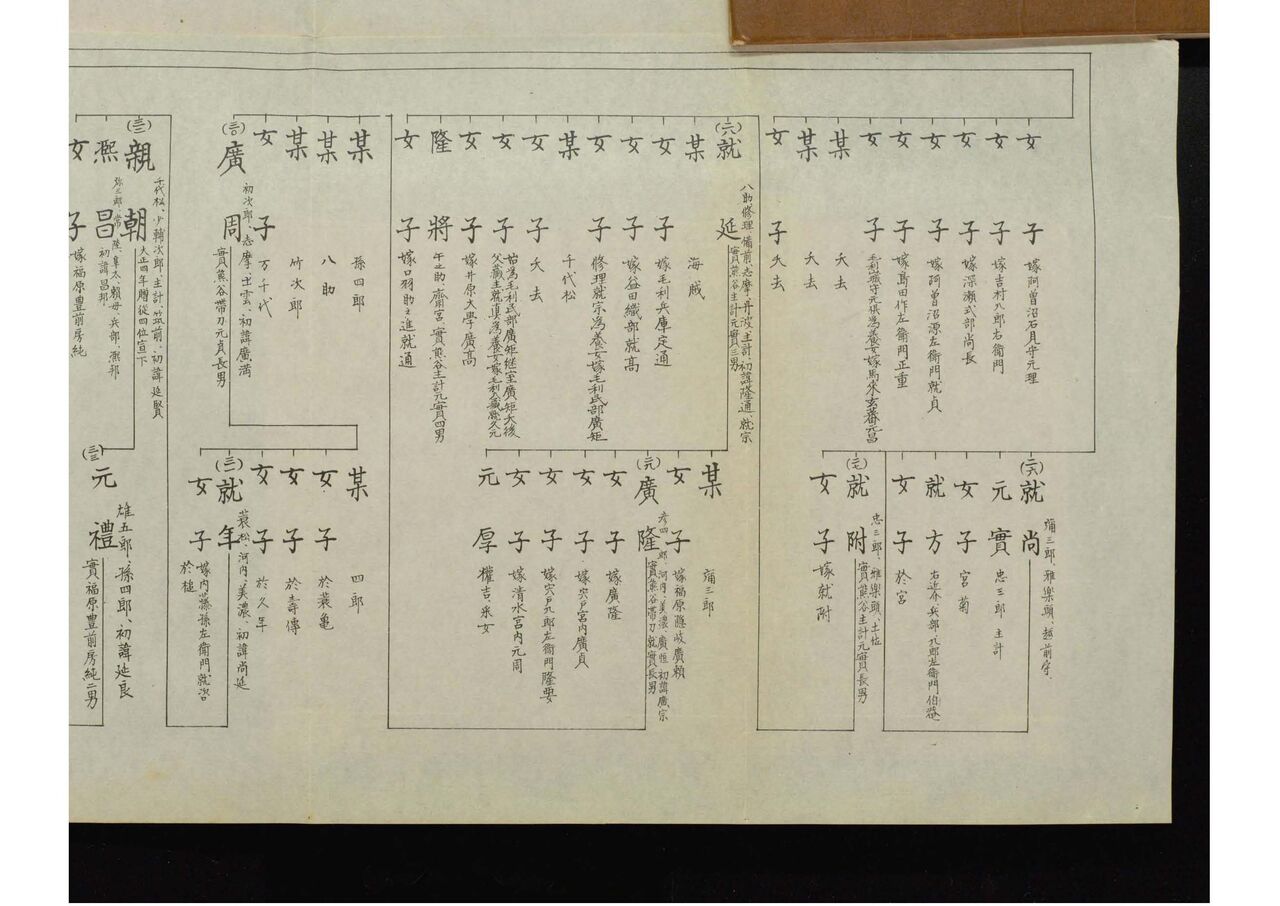 女子 嫁阿曽沼石見守元理
女子 嫁吉村九郎右衛門
女子 嫁深瀬式部尚長
女子 嫁阿曽沼源左衛門就貞
女子 嫁島田作左衛門正重
女子 嫁馬來玄蕃元昌
某 夭去
某 夭去
女子 夭去
(二六)就尚 彌三郎、雅樂頭、越前守、
元實 忠三郎 主計
女子 宮菊
就方 右近介、兵部、九郎左衛門
女子 於宮
(二七)就附 忠三郎、雅樂頭、土佐
實熊谷主計元實長男
女子 嫁就附
(二八)就延 八助、修理 備前、志摩、丹波、主計、初諱隆通、就宗
實熊谷主計元實三男
某 海賊
女子 嫁毛利兵庫定通
女子 嫁益田織部就高
女子 修理就宗為養女嫁毛利民部廣矩
某 千代松
女子 夭去
女子 始為毛利民部廣矩継室廣矩大後
父藏主就真為養女嫁毛利人藏就久元
女子 嫁井原大學廣高
隆將 午之助 齋宮 實熊谷主計元實四男
女子 嫁口羽助之進就通
某 彌三郎
女子 嫁福原隠岐廣頼
(二九)廣隆 彦四郎、河内、美濃、廣恒、初諱廣宗
實熊谷帶刀就實長男
女子 嫁廣隆
女子 嫁宍戸宮内廣貞
女子 嫁宍戸九郎左衛門隆要
女子 嫁清水宮内元周
元厚 權吉 采女
某 孫四郎
某 八助
某 竹次郎
女子 万千代
(三〇)廣周 初次郎、志摩、出雲、初諱廣満
實熊谷帶刀元貞長男
某 四郎
女子 於蓑亀
女子 於壽傳
女子 於久年
(三一)就年 蓑松、河内、美濃、初諱尚延
女子 嫁内藤孫左衛門就治
於槌
(三二)親朝 千代松、少輔次郎、主計、筑前、初諱延賢
大正四年贈從四位宣下
熙昌 弥三郎、常陸、阜太、頼母、兵部、熙邦
初諱昌邦
女子 嫁福原豊前房純
(三三)元禮 雄五郎、孫四郎、初諱延良
實福原豊前房純二男